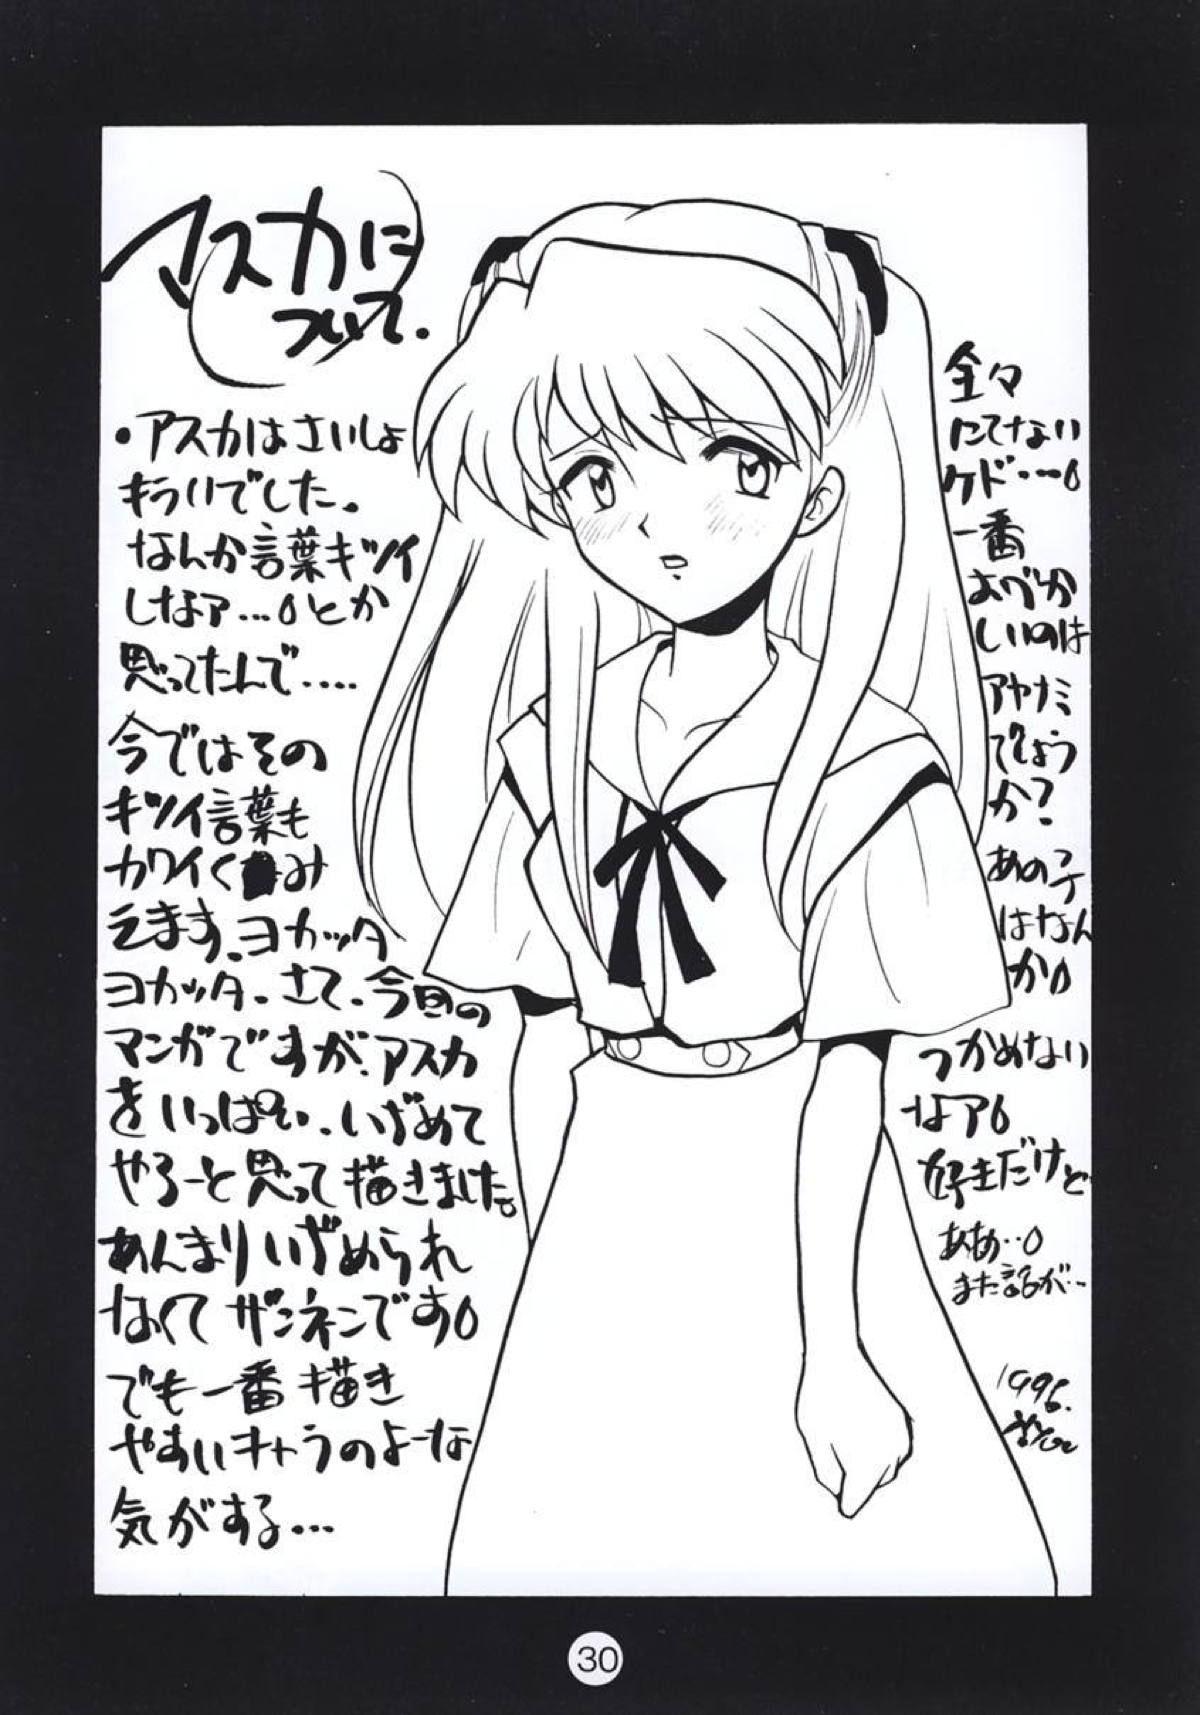 アスカに
ついて.
・アスカはさいしょ
キライでした。
なんか言葉キツイ
しなァ…とか
思ってたんで‥‥
今ではその
キツイ言葉も
カワイくみ
えます。ヨカッタ
ヨカッタ。さて、今回の
マンガですが、アスカ
をいっぱい、いぢめて
やろーと思って描きました。
あんまりいぢめられ
なくてザンネンです
でも一番描き
やすいキャラのよーな
気がする…
全々
にてない
ケド‥‥
一番
むづか
しいのは
アヤナミ
でしょう
か?
あの子
はなん
か
つかめない
なァ
好きだけど
ああ‥
また話が‥
1996.
30